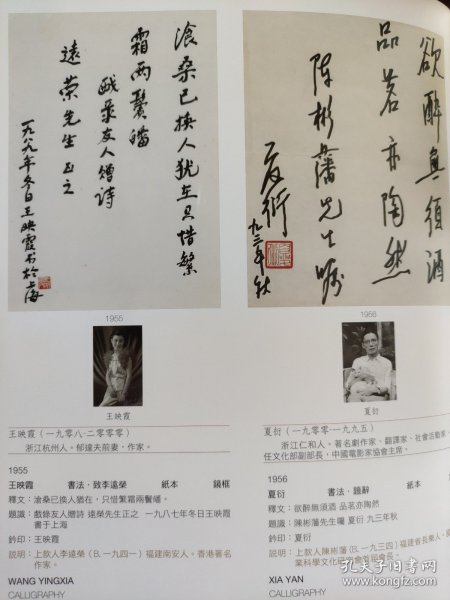 滄桑已换人犹在只惜繁
霜两鬓皤
戯录友人赠诗
遠荣先生正之
一九八九年冬日王映霞书於上海
欲醉無須酒
品茗亦陶然
陈彬藩先生嘱
夏衍
九三年秋
1955
王映霞
王映霞(一九零八-二零零零)
浙江杭州人。郁達夫前妻,作家。
1955
王映霞 書法·致李遠榮 紙本 鏡框
釋文:滄桑已換人猶在,只惜繁霜兩鬢皤。
題識:戲錄友人贈詩 遠榮先生正之 一九八七年冬日王映霞
書于上海
鈐印:王映霞
說明:上款人李遠榮(B.一九四一)福建南安人。香港著名
作家。
WANG YINGXIA
CALLIGRAPHY
1956
夏衍
夏衍(一九零零-一九九五)
浙江仁和人。著名劇作家、翻譯家、社會活動家
任文化部副部長,中國電影家協會主席。
1956
夏衍 書法·鐘辭 紙本
釋文:欲醉無須酒 品茗亦陶然
題識:陳彬藩先生囑 夏衍 九三年秋
鈐印:夏衍
說明:上款人陳彬藩(B.一九三四)福建省長樂人。
業科學文化研究會首屆會長。
XIA YAN
CALLIGRAPHY
孔夫子旧书网